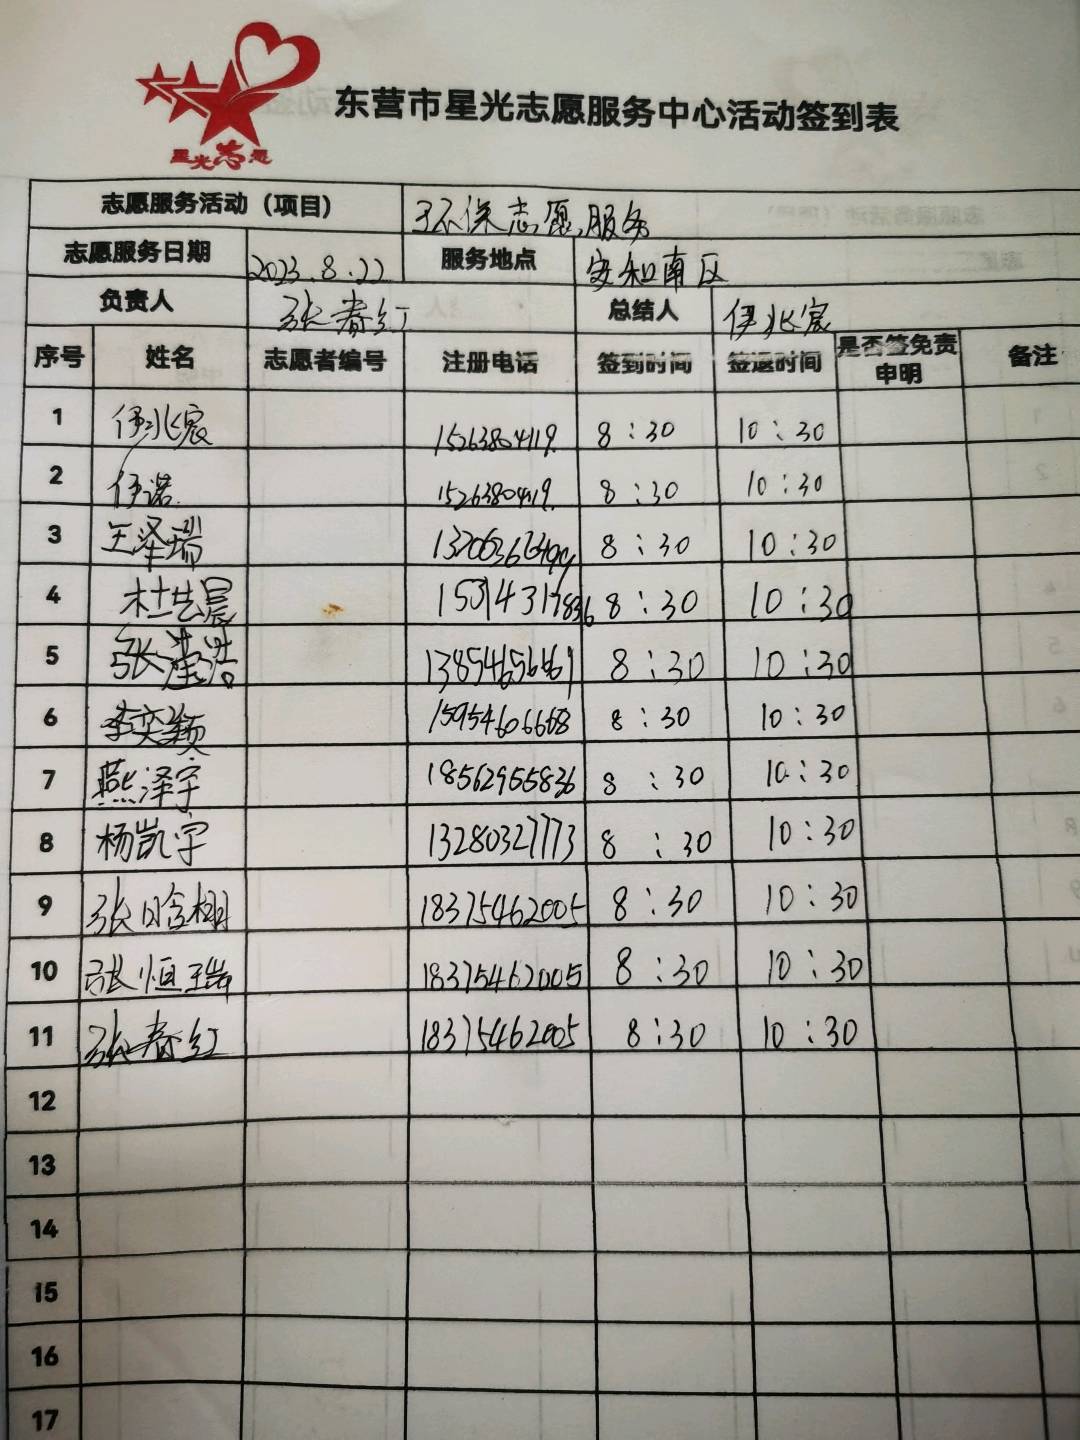 星光志愿
东营市星光志愿服务中心活动签到表
志愿服务活动（项目） 环保志愿服务
志愿服务日期 2023.8.22 服务地点 安和南区
负责人 张春红 总结人 伊兆宸
序号 姓名 志愿者编号 注册电话 签到时间 签退时间 是否签免责申明 备注
1 伊兆宸 15263804119 8:30 10:30
2 伊诺 15263804119 8:30 10:30
3 王泽瑞 8:30 10:30
4 15314317836 8:30 10:30
5 13854656661 8:30 10:30
6 李奕颖 15954606668 8:30 10:30
7 燕泽宇 18562955836 8:30 10:30
8 杨凯宇 13280327773 8:30 10:30
9 张晗栩 18375462005 8:30 10:30
10 张恒瑞 18375462005 8:30 10:30
11 张春红 18375462005 8:30 10:30
12
13
14
15
16
17